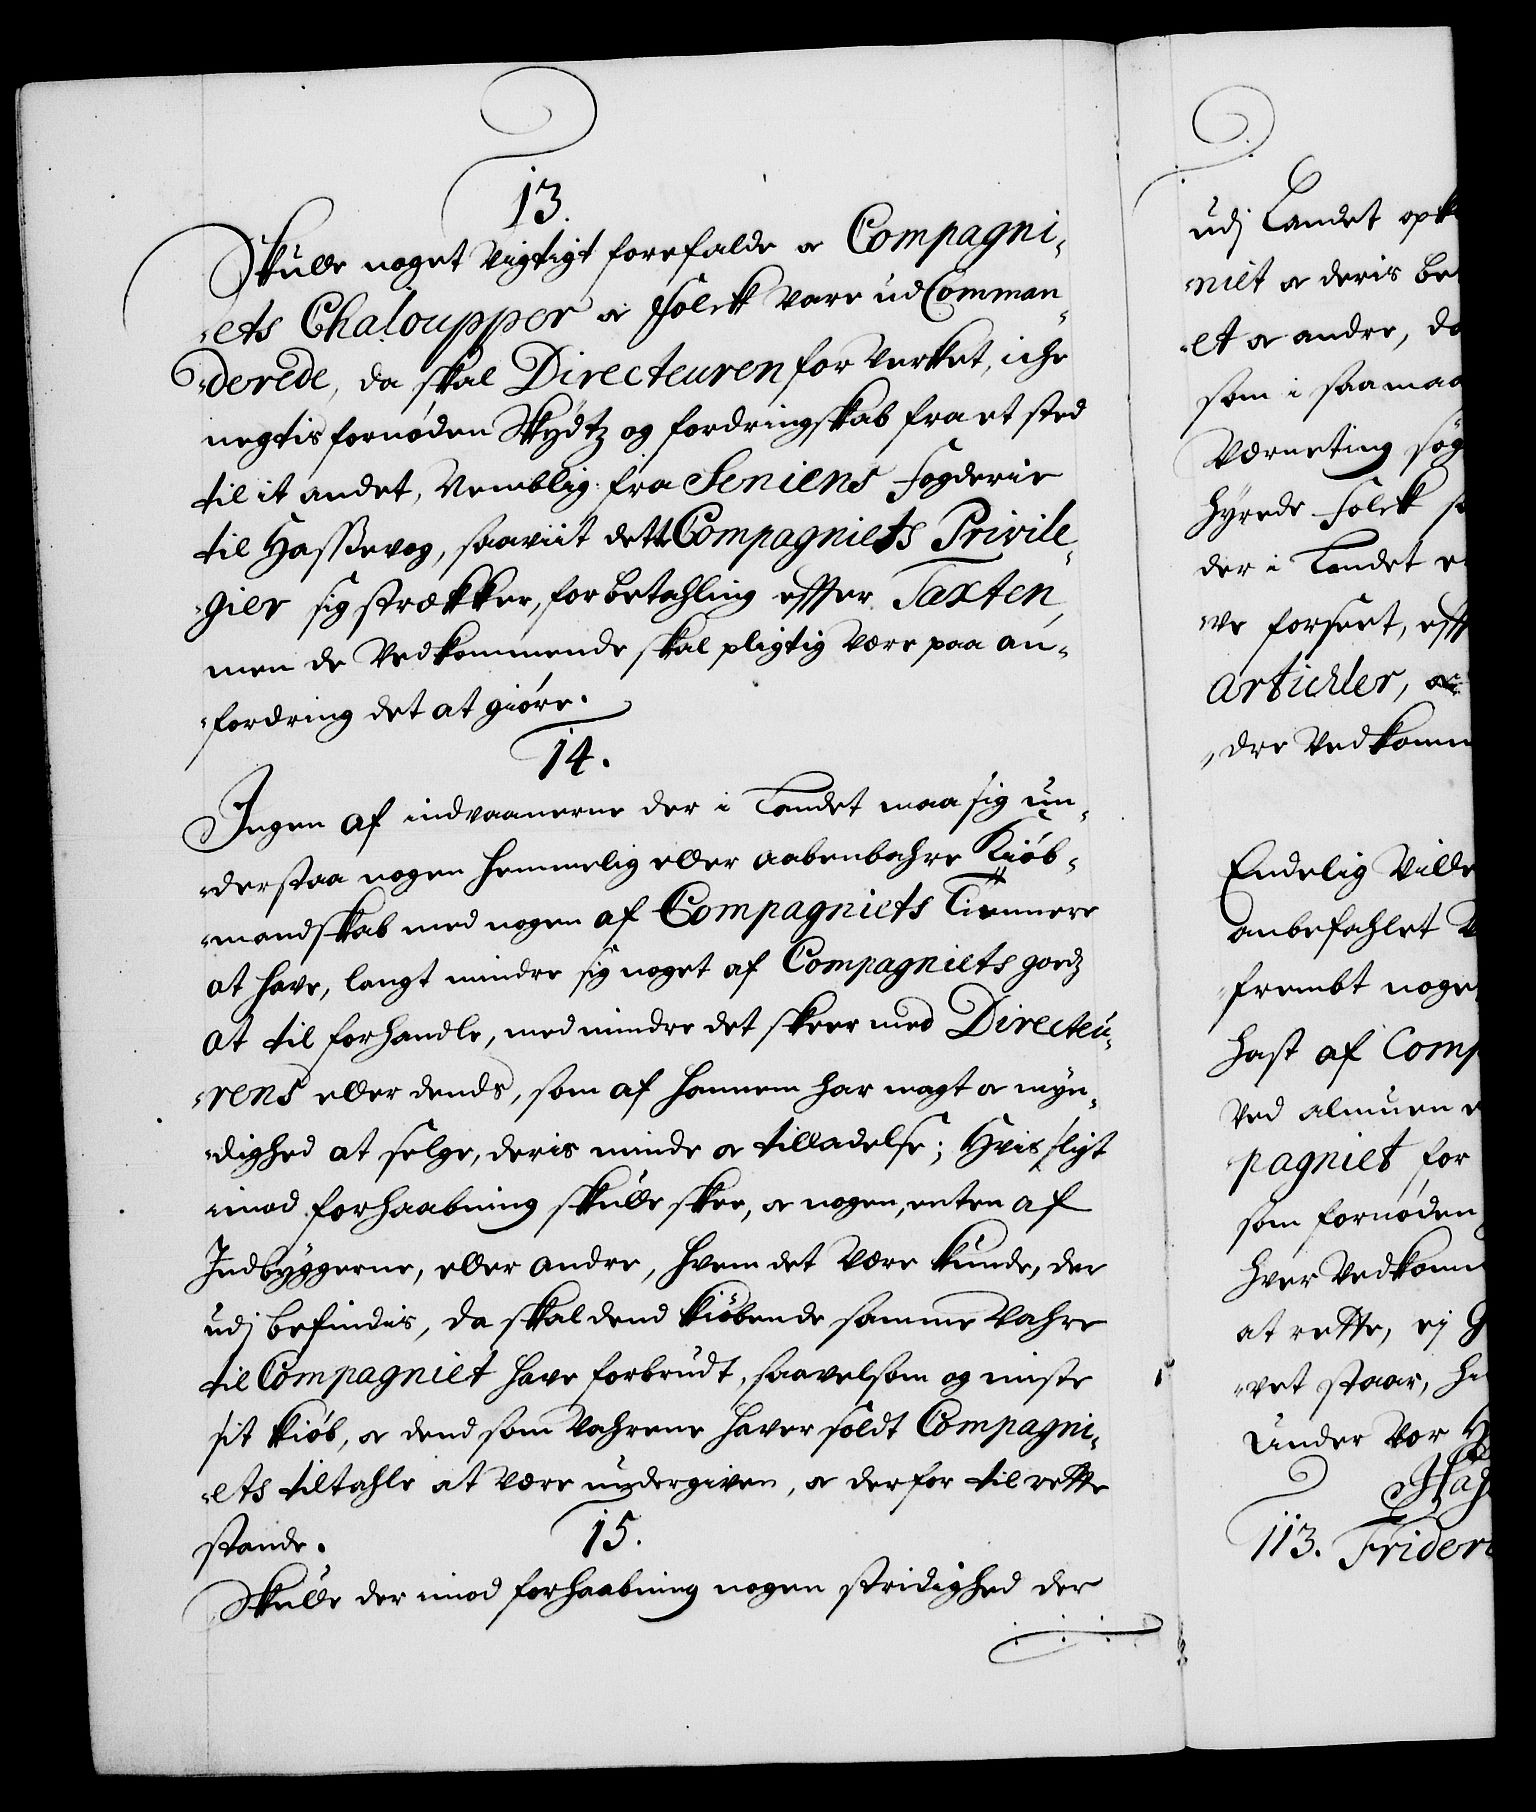 13.
Skulle noget Vigtigt forefalde oc Compagni-
-ets Chaloupper oc Folck Vare ud Comman-
-derede, da skal Directeuren for Verket, iche
negtis fornøden Skydtz og fordringskab fra et sted
til it andet, Nemblig: fra Seniens fogderie
til Hasßevog, saaviit dette Compagniets Privile-
-gier sig strækker, for betahling effter Taxten,
men de Vedkommende skal pligtig Være paa an-
-fordring det at giøre.
14.
Ingen af indvaanerne der i Landet maa sig un-
-derstaa nogen hemmelig eller aabenbahre Kiøb-
-mandskab med nogen af Compagniets Tiennere
at have, langt mindre sig noget af Compagniets goedz
at til forhandle, med mindre det skeer med Directeu-
-rens eller dends, som af hannem har magt oc myn-
-dighed at selge, deris minde oc tilladelse; Hvis sligt
imod forhaabning skulle skee, oc nogen, enten af
Indbyggerne, eller andre, hvem det Være kunde, der
udj befindis, da skal dend kiøbende samme Vahre
til Compagniet have forbrudt, saavelsom og miste
sit kiøb, oc dend som Vahrene haver soldt Compagni-
-ets tiltahle at Være undergiven, oc derfor til rette
stande.
15.
Skulle der imod forhaabning nogen stridighed der
udj Landet opk
-niet oc deris be
-et oc andre, da
som i saa maa
Værneting søg
hyrede Folck s
der i Landet e
-ve forseet, eff
Artichler, oc
-dre Vedkomm
Endelig Ville
anbefahlet V
frembt noge
hast af Comp
Ved almuen e
pagniet for
som fornøden
hver Vedkomm
at rette, ej G
-vet staar, ha
Under Vor H
Hafn
113. Frideri